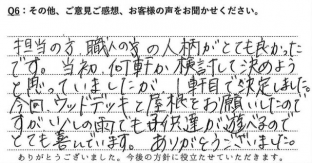 Q6：その他、ご意見ご感想、お客様の声をお聞かせください。
担当の方、職人の方の人柄がとても良かった
です。当初、何軒か検討して決めよう
と思っていましたが、1軒目で決定しました。
今回ウッドデッキと屋根をお願いしたので
すが少しの雨でも子供達が遊べるので
とても喜んでいます。ありがとうございました。
ありがとうございました。今後の方針に役立たせていただきます。